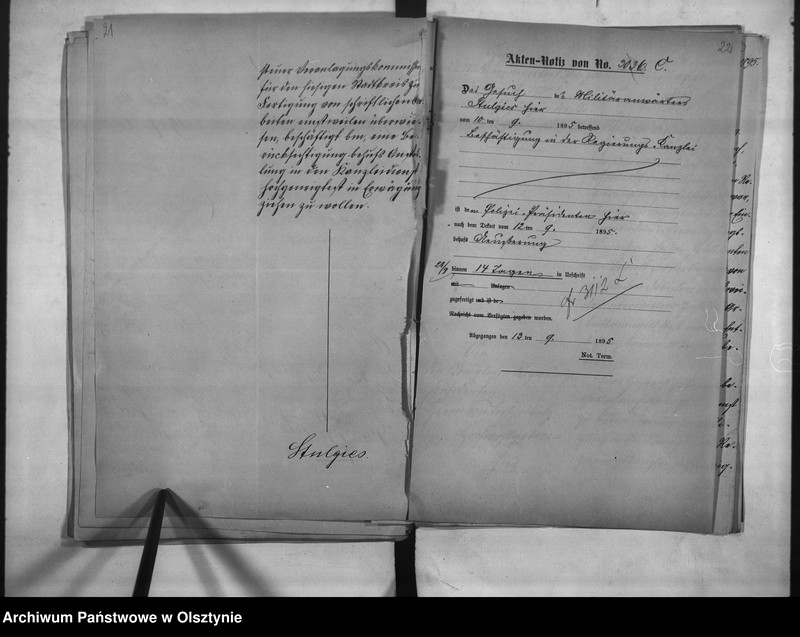 21
steuer Veranlagungskommission
für den hiesigen Stadtkreis zu
Fertigung von schriftlichen Ar-
beiten einstweilen überwie-
sen, beschäftigt bin, eine Be-
rücksichtigung behufs Anstel-
lung in den Kanzleidienst
hochgeneigtest in Erwägung
ziehen zu wollen.
Stulgies.
22
Akten-Notiz von No. 2026 C.
Das Gesuch des Militäranwärters
Stulgies hier
vom 10 ten 9. 1895 betreffend
Beschäftigung in der Regierungs-Kanzlei
ist dem Polizei-Präsidenten hier
nach dem Dekret vom 12 ten 9. 1895
behufs Aeußerung
binnen 14 Tagen in Urschrift
mit Anlagen
zugefertigt und ist de
Nachricht vom Verfügten gegeben worden.
Abgegangen den 13 ten 9. 1895
Not. Term.
Archiwum Państwowe w Olsztynie